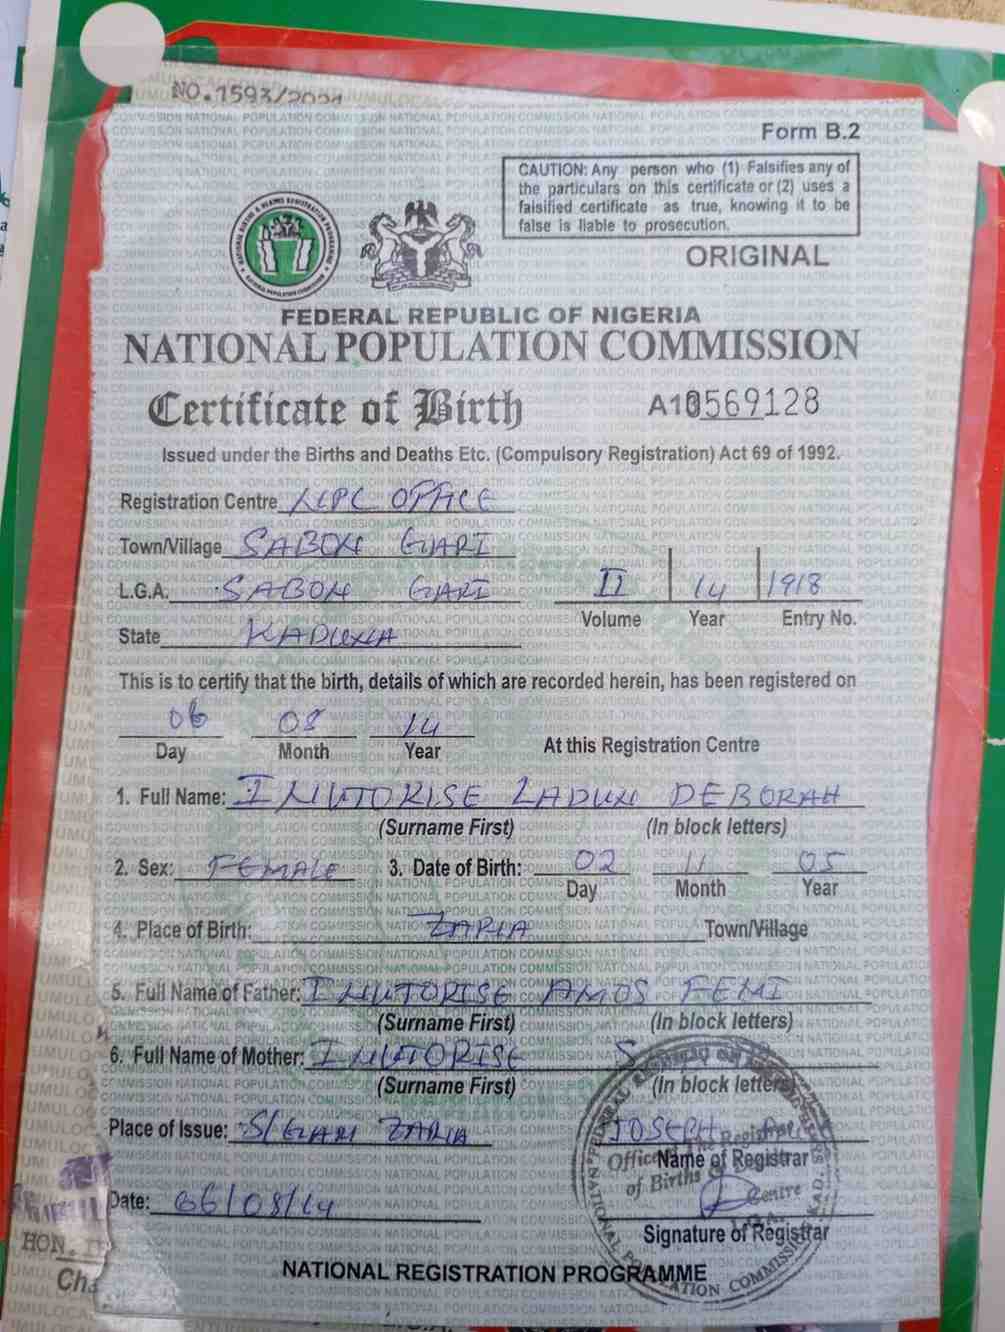 NO.1593/2021
Form B.2
CAUTION: Any person who (1) Falsifies any of
the particulars on this certificate or (2) uses a
falsified certificate as true, knowing it to be
false is liable to prosecution.
ORIGINAL
FEDERAL REPUBLIC OF NIGERIA
NATIONAL POPULATION COMMISSION
Certificate of Birth
A10569128
Issued under the Births and Deaths Etc. (Compulsory Registration) Act 69 of 1992.
Registration Centre NPC OFFICE
Town/Village SABON GARI
L.G.A. SABON GARI
II 14 1918
Volume Year Entry No.
State KADUNA
This is to certify that the birth, details of which are recorded herein, has been registered on
06 08 14
Day Month Year At this Registration Centre
1. Full Name: LADUN DEBORAH
(Surname First) (In block letters)
2. Sex: FEMALE 3. Date of Birth: 02 11 05
Day Month Year
4. Place of Birth: ZARIA Town/Village
5. Full Name of Father: AMOS FEMI
(Surname First) (In block letters)
6. Full Name of Mother: S
(Surname First) (In block letters)
Place of Issue: S/GARI ZARIA JOSEPH
Name of Registrar
Date: 06/08/14
Signature of Registrar
NATIONAL REGISTRATION PROGRAMME
HON.
Cha